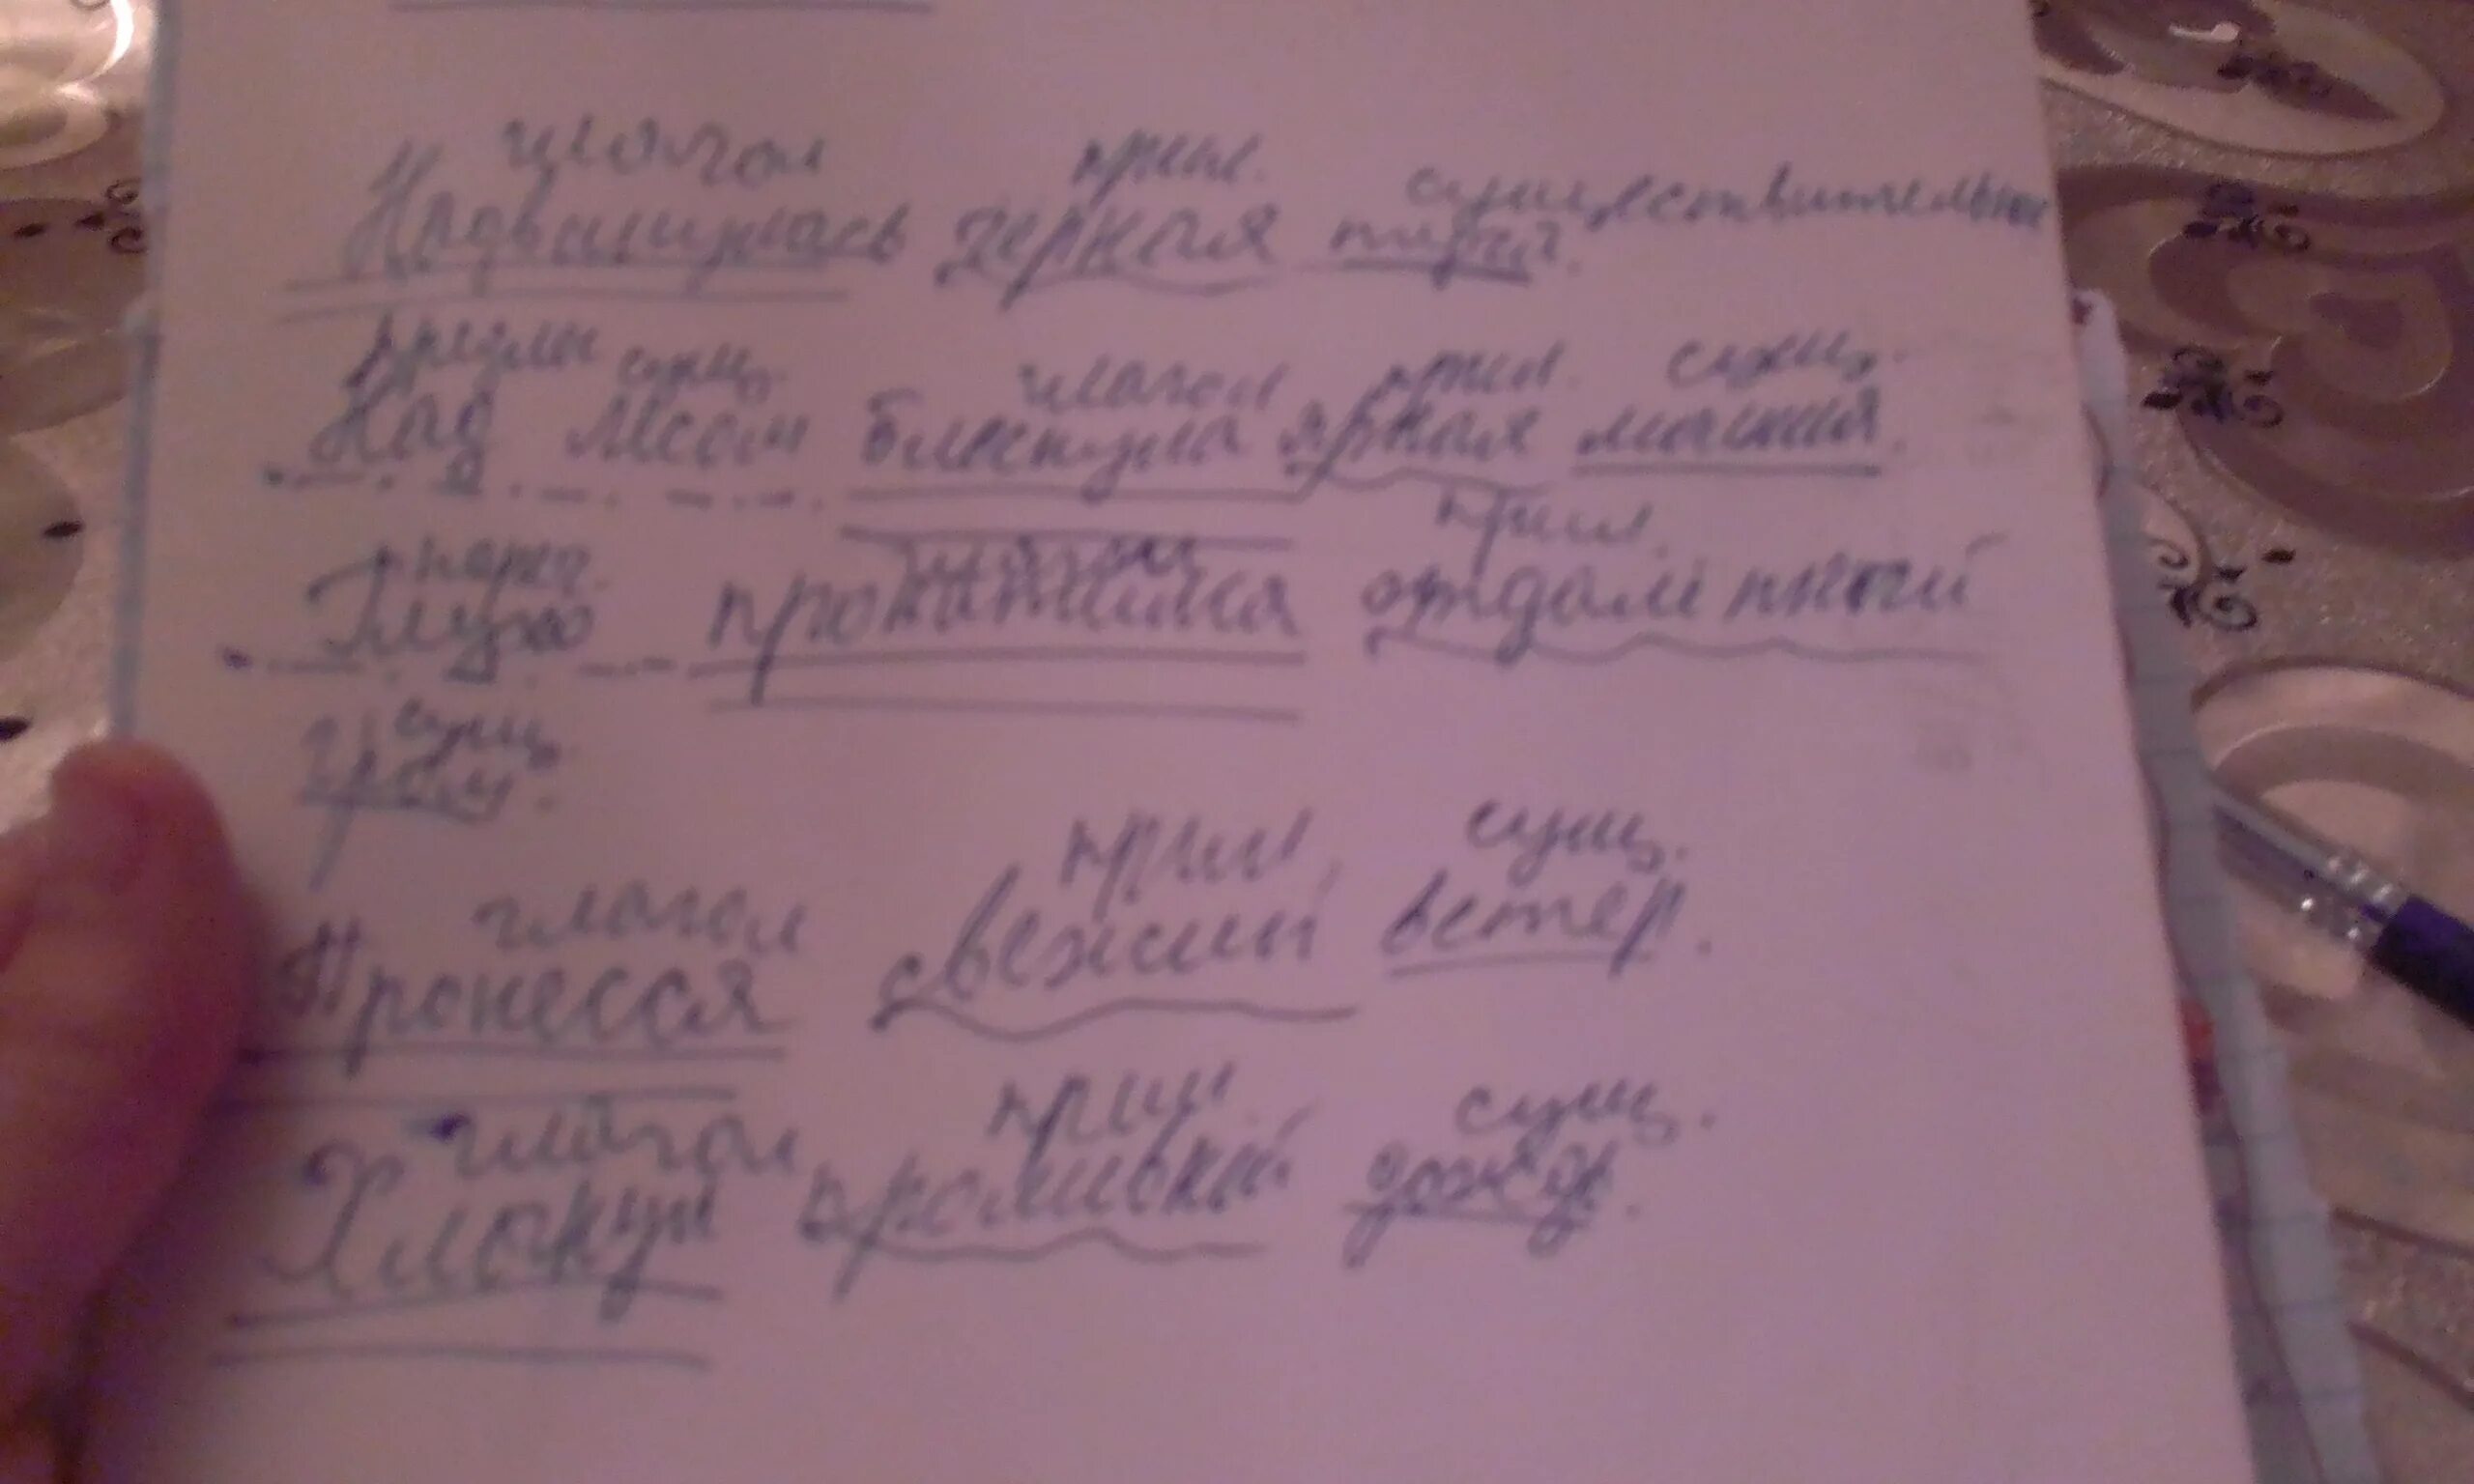 глагол прил. существительное
Надвинулась черная туча.
предлог сущ. глагол прил. сущ.
Над лесом блеснула яркая молния.
нареч. глагол прил.
Глухо прокатился отдалённый
сущ.
гром.
глагол прил. сущ.
Пронёсся свежий ветер.
глагол прил. сущ.
Хлынул проливной дождь.